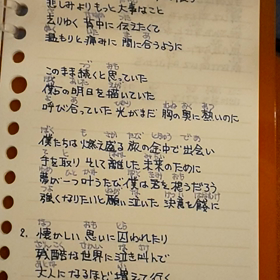 悲しみよりもっと大事なこと
去りゆく背中に伝えたくて
温もりと痛みに間に合うように
このまま続くと思っていた
僕らの明日を描いていた
呼び合っていた光がまだ胸の奥に熱いのに
僕たちは燃え盛る旅の途中で出会い
手を取りそして離した未来のために
夢が一つ叶うたび僕は君を想うだろう
強くなりたいと願い泣いた決意を餞に
2. 懐かしい思いに囚われたり
残酷な世界に泣き叫んで
大人になるほど増えて行く